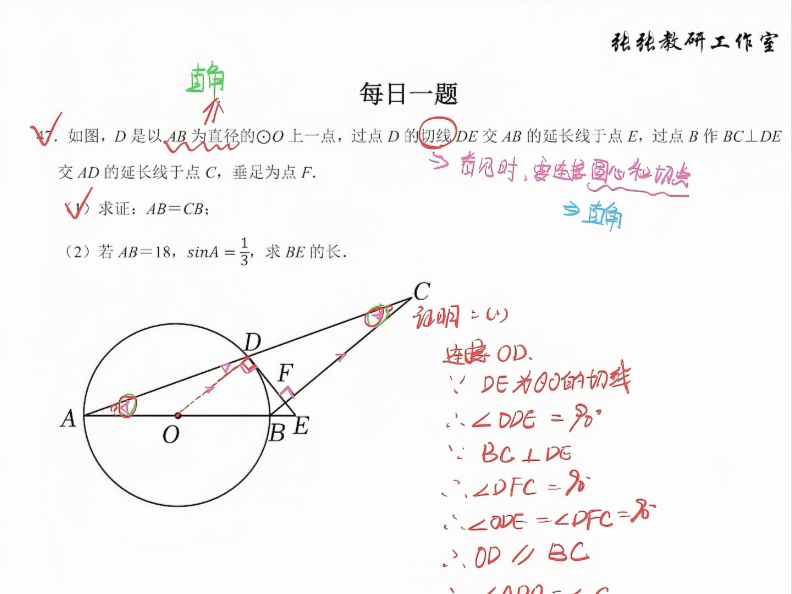 张张教研工作室
直角
每日一题
47．如图，D 是以 AB 为直径的⊙O 上一点，过点 D 的切线 DE 交 AB 的延长线于点 E，过点 B 作 BC⊥DE
交 AD 的延长线于点 C，垂足为点 F．
有切时，要连接圆心和切点
（1）求证：AB＝CB；
⇒直角
（2）若 AB＝18，sinA＝1/3，求 BE 的长．
C
证明：(1)
D
连接 OD.
F
∵ DE为⊙O的切线
A O B E
∴∠ODE = 90°
∵ BC⊥DE
∴∠DFC = 90°
∴∠ODE = ∠DFC = 90°
∴ OD // BC